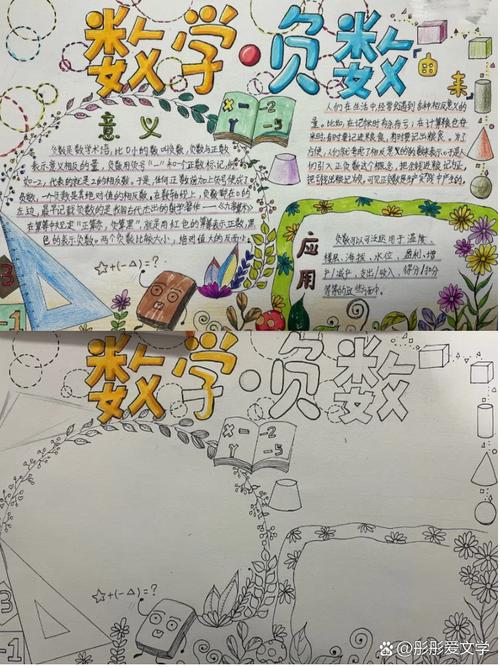 数学·负数
由来
X- -2
Y -5
意义
负数是数学术语,比0小的数叫负数,负数与正数
表示意义相反的量,负数用负号"-"和一个正数标记,如
如-2,代表的就是2的相反数。于是,任何正数前加上负号便成了
负数,一个负数是其绝对值的相反数。在数轴线上,负数都在0的
左边,最早记载负数的是我国古代杰出的数学著作——《九章算术》
在算筹中规定"正算赤,负算黑",就是用红色的算筹表示正数,黑
色的表示负数。两个负数比较大小,绝对值大的反而小。
人们在生活中经常会遇到各种相反意义的
量。比如,在记账时有余有亏;在计算粮仓存
米时,有时要记进粮食,有时要记出粮食。为了
方便,人们就考虑了相反意义的数来表示,于是人
们引入正负数这个概念,把余钱进粮记为正,
把亏钱出粮记为负,可见正负数是生产实践中产生的。
应用
负数可以广泛应用于温度、
楼层、海拔、水位、盈利、增
产/减产、支出/收入、得分/扣分
等等的这些方面中。
☆+(-△)=?
3
-1
数学·负数
X- -2
Y -5
☆+(-△)=?
3
-1
@彤彤爱文学